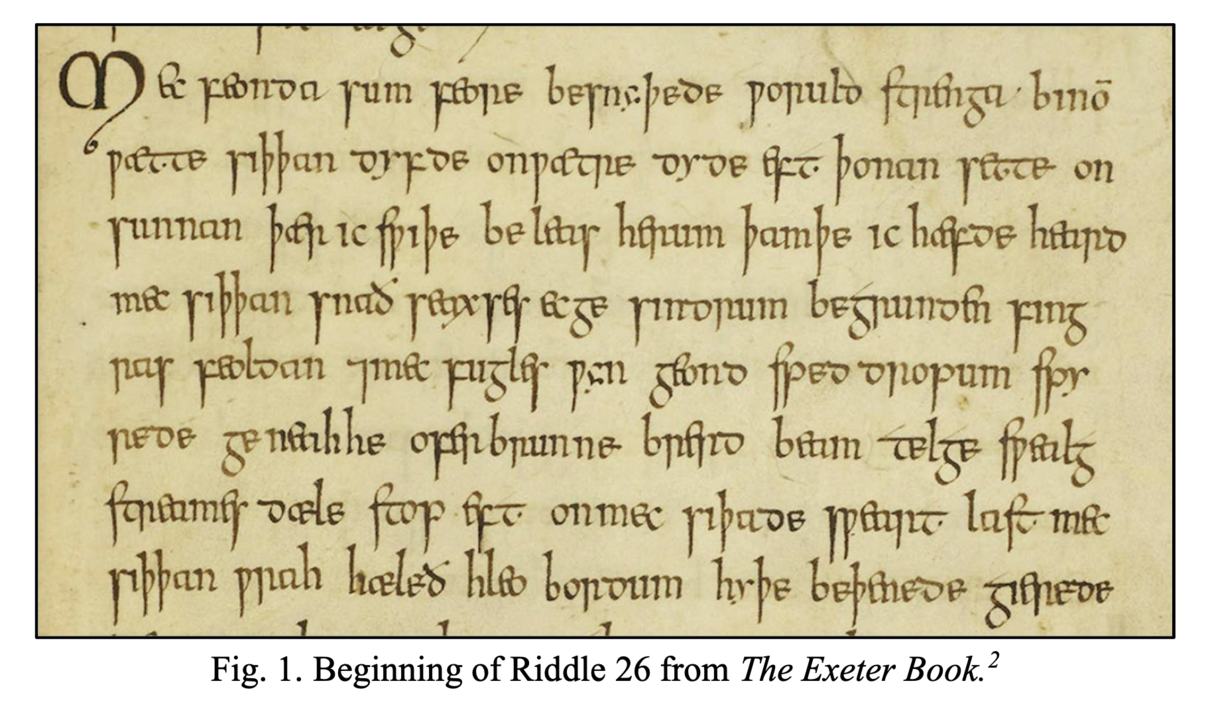 Mec feonda sum feore besnyþede ƿoruld strenga · binō
ƿætte siþþan dyfde onƿætre dyde eft þonan sette on
sunnan þær ic sƿiþe beleas herum þamþe ic hæfde heard
mec siþþan snað seaxses ecge sindrum begrunden fing
ras feoldan ⁊mec fugles ƿyn geond sped dropum spy
rede geneahhe ofer brunne brerd beam telge sƿealg
streames dæle stop eft onmec siþade sƿeart last mec
siþþan ƿrah hæleð hleo bordum hyþe beþenede gierede
Fig. 1. Beginning of Riddle 26 from The Exeter Book.²